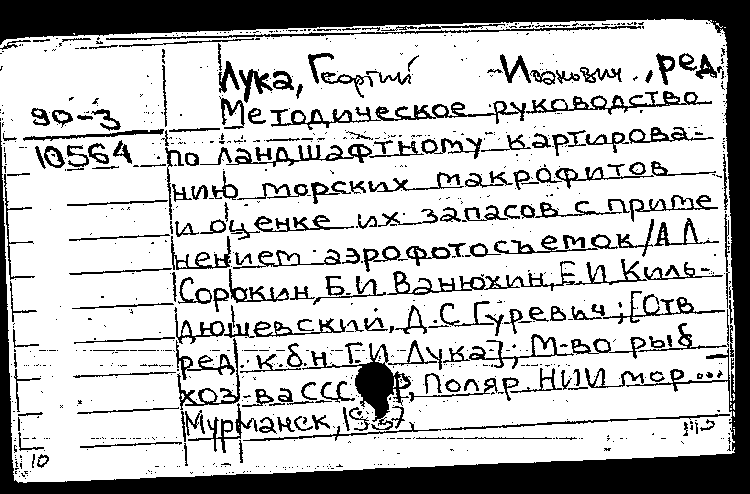 Лука, Георгий Иванович, ред.
90-3
Методическое руководство
10564
по ландшафтному картирова-
нию морских макрофитов
и оценке их запасов с приме
нением аэрофотосъемок / А Л
Сорокин, Б.И. Ванюхин, Е.И. Киль-
дюшевский, Д.С. Гуревич; [Отв
ред. к.б.н. Г.И. Лука]; М-во рыб
хоз-ва СССР, Поляр. НИИ мор...
Мурманск,
10